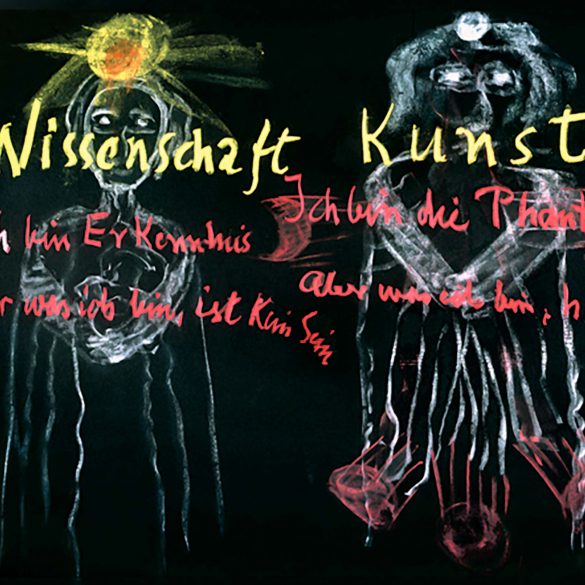 Wissenschaft
Kunst
h bin Erkenntnis
Ich bin die Phant
r was ich bin, ist Kein Sein
Aber was ich bin, h